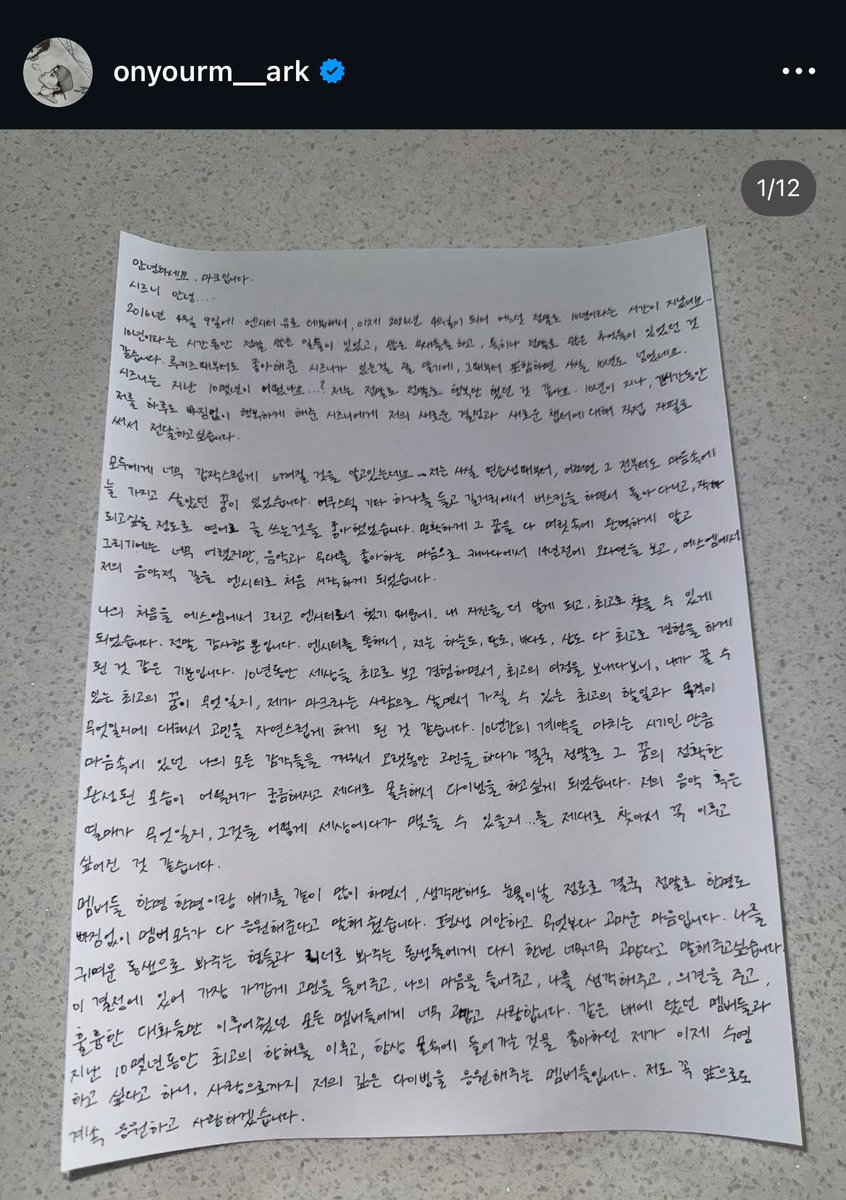 onyourm__ark
1/12
안녕하세요, 마크입니다.
시즈니 안녕....
2016년 4월 9일에 엔시티 유로 데뷔해서, 이제 2026년 4월이 되어 어느덧 정말로 10년이라는 시간이 지났네요..
10년이라는 시간동안 정말 많은 일들이 있었고, 많은 모세들을 하고, 특히나 정말로 많은 추억들이 있었던 것
같습니다. 루키즈때부터도 좋아해준 시즈니가 있는걸 잘 알기에, 그때부터 포함하면 사실 10년도 넘었네요.
시즈니는 지난 10몇년이 어땠나요...? 저는 정말로 정말로 행복만 했던 것 같아요. 10년이 지나, 그 시간동안
저를 하루도 빠짐없이 행복하게 해준 시즈니에게 저의 새로운 결정과 새로운 챕터에 대해 직접 자필로
써서 전달하고싶습니다.
모두에게 너무 갑작스럽게 느껴질 것을 알고있는데요... 저는 사실 연습생때부터, 어쩌면 그 전부터도 마음속에
늘 가지고 살았던 꿈이 있었습니다. 어쿠스틱 기타 하나를 들고 길거리에서 버스킹을 하면서 돌아 다니고, 작가
되고싶을 정도로 영어로 글 쓰는것을 좋아했었습니다. 명확하게 그 꿈을 다 머릿속에 완벽하게 알고
그리기에는 너무 어렸지만, 음악과 무대를 좋아하는 마음으로 캐나다에서 14년전에 오디션을 보고, 에스엠에서
저의 음악적 길을 엔시티로 처음 시작하게 되었습니다.
나의 처음을 에스엠에서 그리고 엔시티로서 했기 때문에, 내 자신을 더 알게 되고, 최고로 찾을 수 있게
되었습니다. 정말 감사할 뿐입니다. 엔시티를 통해서, 저는 하늘도, 땅도, 바다도, 산도 다 최고로 경험을 하게
된 것 같은 기분입니다. 10년동안 세상을 최고로 보고 경험하면서, 최고의 여정을 보내다보니, 내가 꿀 수
있는 최고의 꿈이 무엇일지, 제가 마크라는 사람으로 살면서 가질 수 있는 최고의 할일과 목적이
무엇일지에 대해서 고민을 자연스럽게 하게 된 것 같습니다. 10년간의 계약을 마치는 시기인 만큼
마음속에 있던 나의 모든 감각들을 깨워서 오랫동안 고민을 하다가 결국 정말로 그 꿈의 정확한
완성된 모습이 어떨지가 궁금해지고 제대로 몰두해서 다이빙을 하고싶게 되었습니다. 저의 음악 혹은
열매가 무엇일지, 그것을 어떻게 세상에다가 맺을 수 있을지...를 제대로 찾아서 꼭 이루고
싶어진 것 같습니다.
멤버들 한명 한명이랑 얘기를 같이 많이 하면서, 생각만해도 눈물이날 정도로 결국 정말로 한명도
빠짐없이 멤버 모두가 다 응원해준다고 말해 줬습니다. 평생 미안하고 무엇보다 고마운 마음입니다. 나를
귀여운 동생으로 봐주는 형들과 리더로 봐주는 동생들에게 다시 한번 너무너무 고맙다고 말해주고싶습니다
이 결정에 있어 가장 가깝게 고민을 들어주고, 나의 마음을 들어주고, 나를 생각해주고, 의견을 주고,
훌륭한 대화들만 이루어줬던 모든 멤버들에게 너무 고맙고 사랑합니다. 같은 배에 탔던 멤버들과
지난 10몇년동안 최고의 항해를 이루고, 항상 물속에 들어가는 것을 좋아하던 제가 이제 수영
하고 싶다고 하니, 사랑으로까지 저의 깊은 다이빙을 응원해주는 멤버들입니다. 저도 꼭 앞으로도
계속 응원하고 사랑하겠습니다.